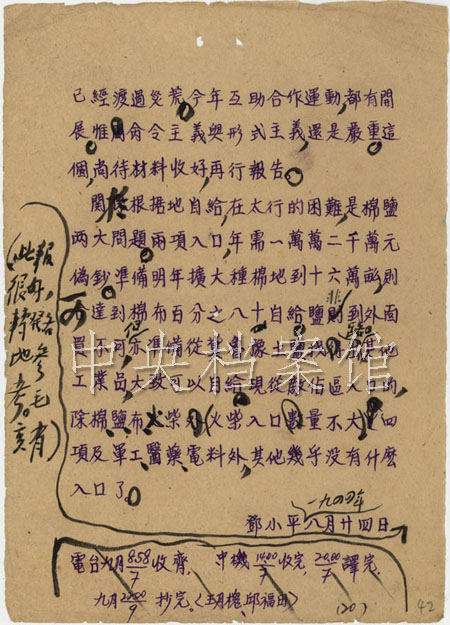 已經渡過災荒今年互助合作運動,都有開
展惟命令主義與形式主義,還是嚴重這
個,尚待材料收好,再行報告。
關於根据地自給,在太行的困难是棉鹽
两大問題兩項入口,年需一萬萬二千萬元
偽鈔準備明年擴大種棉地到十六萬畝,則
可達到棉布百分之八十自給鹽則非到外面
買不可但亦準備從 土鹽 其他
工業品,大致可以自給現從敵佔區入口的,
除棉鹽布火柴外(火柴入口數量不大)四
項及軍工醫藥電料外,其他幾乎没有什庅
入口了。
一九四四年
鄧小平 八月廿四日
(此報
很好,轉各
地參考。毛
電台九月8.58/7收齊, 中機1400/7收完, 2000/7譯完.
九月2000/9抄完. 邱福田
(20)
42
中央档案馆